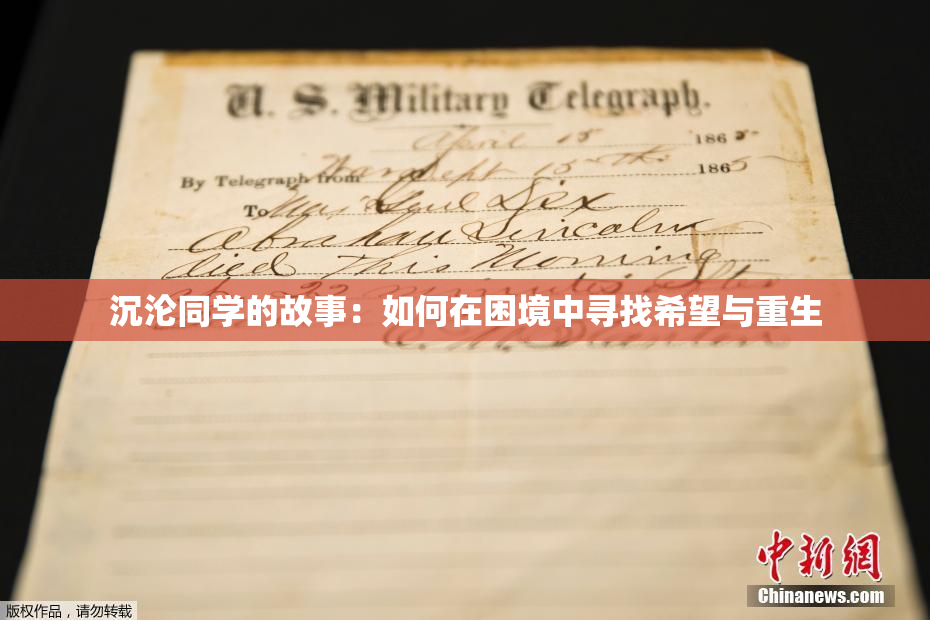 U. S. Military Telegraph.
April 15 1865
By Telegraph from War Dept 15th 1865
To Maj Genl Dix
Abraham Lincoln
died This Morning
at 22 minutes after
沉沦同学的故事：如何在困境中寻找希望与重生
E. M. Stanton
中新网
Chinanews.com
版权作品，请勿转载